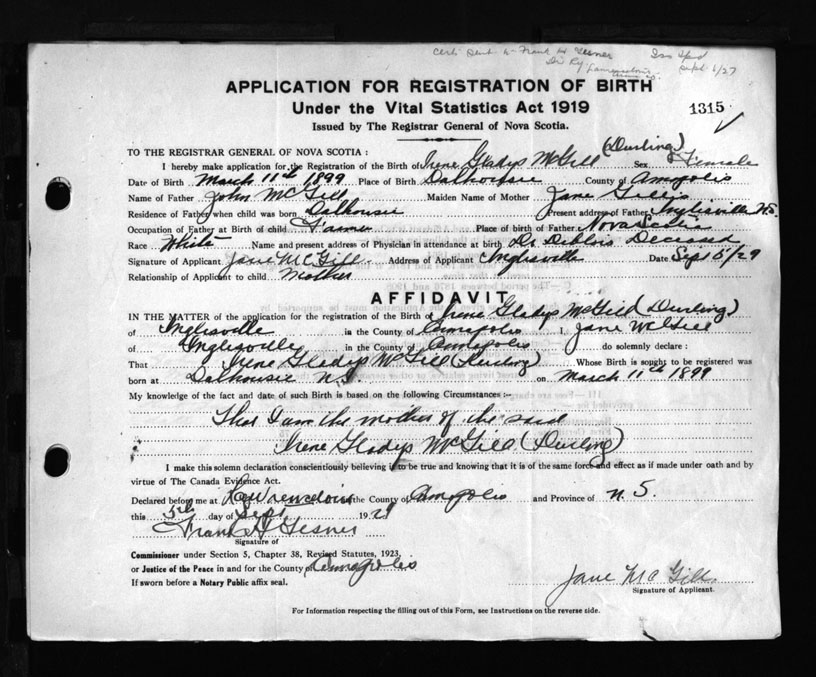 Frank H Gesner
Sept 6/27
APPLICATION FOR REGISTRATION OF BIRTH
Under the Vital Statistics Act 1919
1315
Issued by The Registrar General of Nova Scotia.
TO THE REGISTRAR GENERAL OF NOVA SCOTIA :
(Durling)
I hereby make application for the Registration of the Birth of Irene Gladys McGill Sex Female
Date of Birth March 11th 1899 Place of Birth Dalhousie County of Annapolis
Name of Father John McGill Maiden Name of Mother Jane Gillis
Residence of Father when child was born Dalhousie Present address of Father Inglisville N.S.
Occupation of Father at Birth of child Farmer Place of birth of Father Nova Scotia
Race White Name and present address of Physician in attendance at birth Dr. DeBlois Deceased
Signature of Applicant Jane McGill Address of Applicant Inglisville Date Sept 5/29
Relationship of Applicant to child Mother
AFFIDAVIT
IN THE MATTER of the application for the registration of the Birth of Irene Gladys McGill (Durling)
of Inglisville in the County of Annapolis I Jane McGill
of Inglisville in the County of Annapolis do solemnly declare :
That Irene Gladys McGill (Durling) Whose Birth is sought to be registered was
born at Dalhousie N.S. on March 11th 1899
My knowledge of the fact and date of such Birth is based on the following Circumstances :-
That I am the mother of the said
Irene Gladys McGill (Durling)
I make this solemn declaration conscientiously believing it to be true and knowing that it is of the same force and effect as if made under oath and by
virtue of The Canada Evidence Act.
Declared before me at Lawrencetown the County of Annapolis and Province of N.S.
this 5th day of Sept 1929
Frank H Gesner
Signature of
Commissioner under Section 5, Chapter 38, Revised Statutes, 1923,
or Justice of the Peace in and for the County Annapolis
If sworn before a Notary Public affix seal.
Jane McGill
Signature of Applicant.
For Information respecting the filling out of this Form, see Instructions on the reverse side.